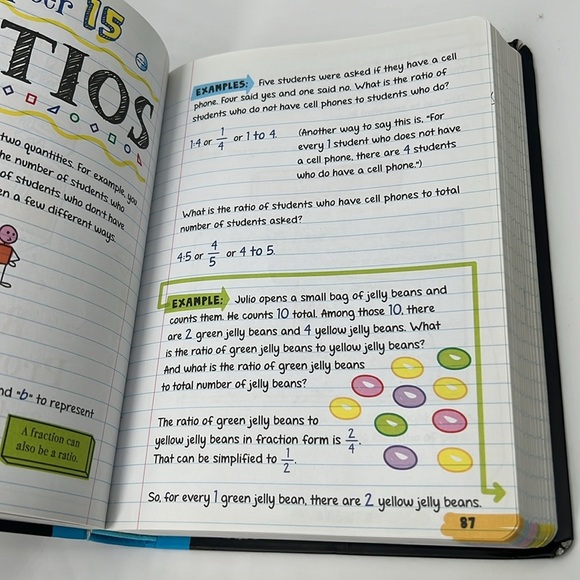 15
TIOS
two quantities. For example, you
the number of students who
of students who don't have
a few different ways.
"b" to represent
A fraction can
also be a ratio.
EXAMPLES: Five students were asked if they have a cell
phone. Four said yes and one said no. What is the ratio of
students who do not have cell phones to students who do?
1:4 or 1/4 or 1 to 4.
(Another way to say this is, "For
every 1 student who does not have
a cell phone, there are 4 students
who do have a cell phone.")
What is the ratio of students who have cell phones to total
number of students asked?
4:5 or 4/5 or 4 to 5.
EXAMPLE: Julio opens a small bag of jelly beans and
counts them. He counts 10 total. Among those 10, there
are 2 green jelly beans and 4 yellow jelly beans. What
is the ratio of green jelly beans to yellow jelly beans?
And what is the ratio of green jelly beans
to total number of jelly beans?
The ratio of green jelly beans to
yellow jelly beans in fraction form is 2/4.
That can be simplified to 1/2.
So, for every 1 green jelly bean, there are 2 yellow jelly beans.
87